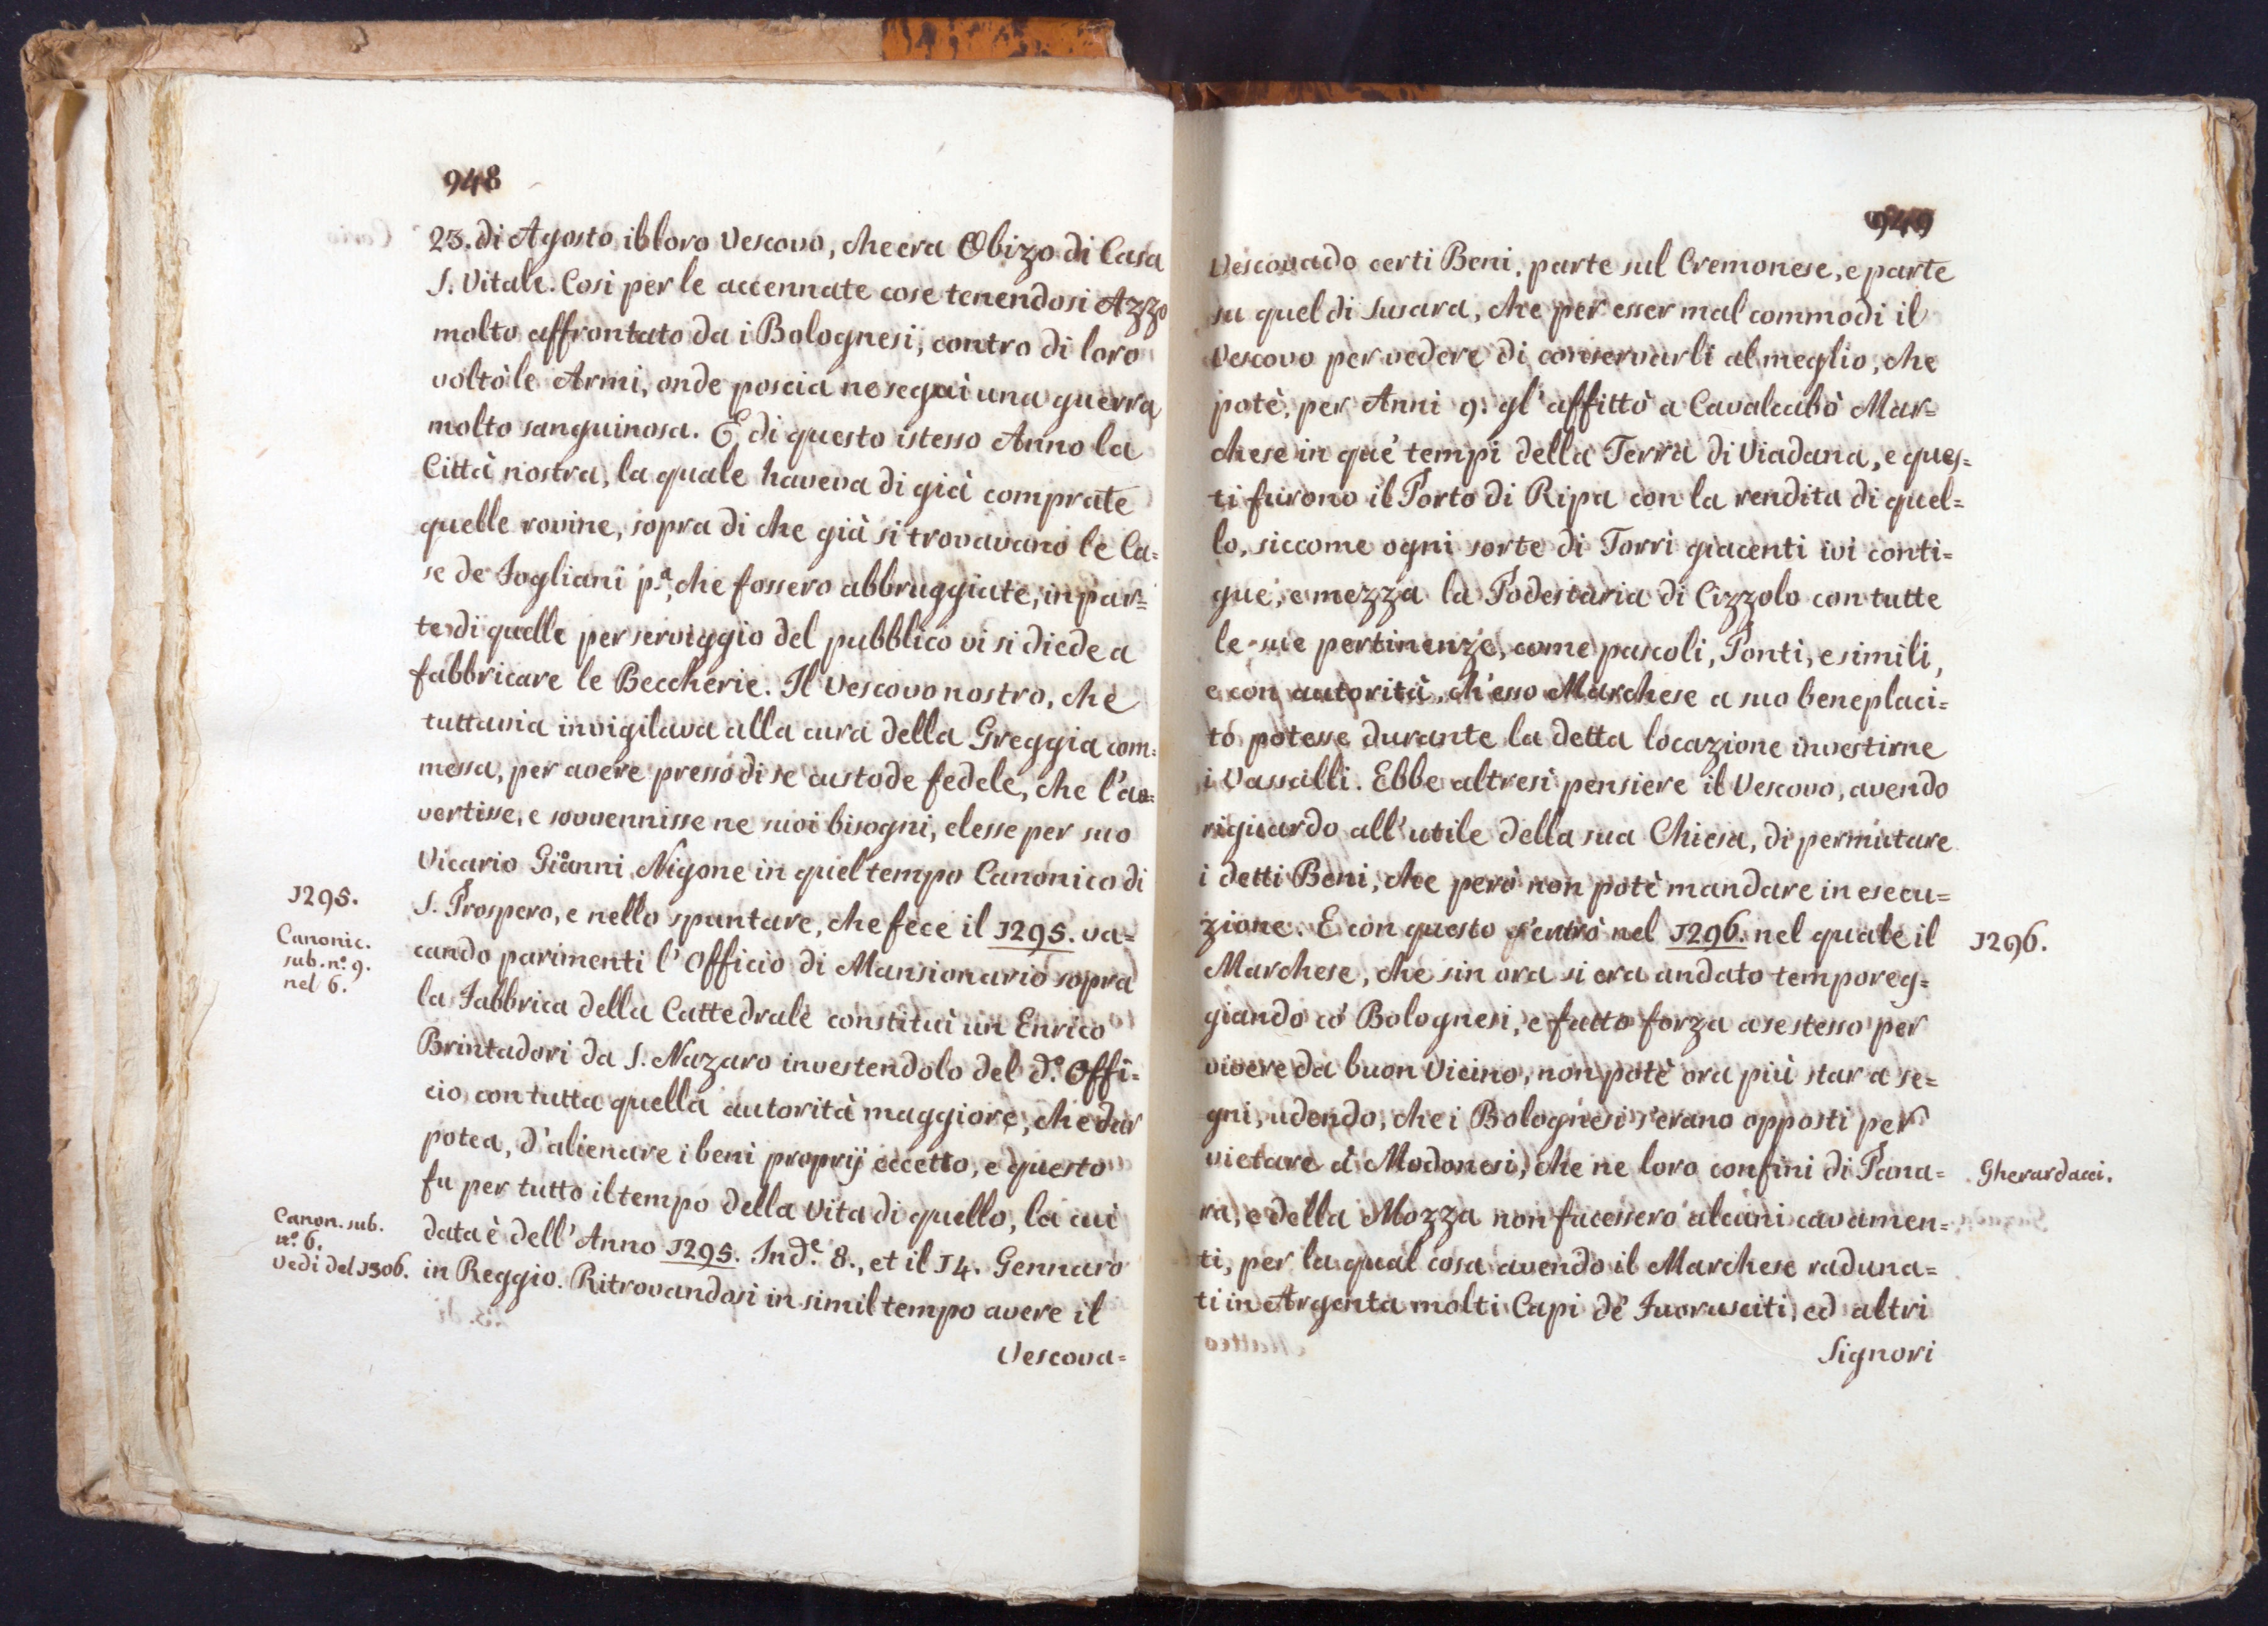 948
23. di Agosto il loro Vescovo, che era Obizo di Casa
S. Vitale. Così per le accennate cose tenendosi Azzo
molto affrontato da i Bolognesi, contro di loro
voltò le Armi, onde poscia ne seguì una guerra
molto sanguinosa. E di questo istesso Anno la
Città nostra, la quale haveva di già comprate
quelle rovine, sopra di che già si trovavano le Ca=
se de Fogliani p.ª, che fossero abbruggiate, in par=
te di quelle per serviggio del pubblico vi si diede a
fabbricare le Beccherie. Il Vescovo nostro, che
tuttavia invigilava alla cura della Greggia com=
messa, per avere presso di se custode fedele, che l'av=
vertisse, e sovvennisse ne suoi bisogni, elesse per suo
Vicario Gioanni Nigone in quel tempo Canonico di
1295.
S. Prospero, e nello spuntare, che fece il 1295. va=
Canonic.
sub. nº. 9.
nel 6.
cando parimenti l'Officio di Mansionario sopra
la Fabbrica della Cattedrale constituì un Enrico
Brintadori da S. Nazaro investendolo del d.º Offi=
cio con tutta quella autorità maggiore, che dar
potea, d'alienare i beni proprij eccetto, e questo
fu per tutto il tempo della Vita di quello, la cui
Canon. sub.
nº. 6.
Vedi del 1306.
data è dell'Anno 1295. Ind.e 8., et il 14. Gennaro
in Reggio. Ritrovandosi in simil tempo avere il
Vescova=
949
Vescovado certi Beni, parte sul Cremonese, e parte
su quel di Susara, che per esser mal commodi il
Vescovo per vedere di conservarli al meglio, che
potè, per Anni 9. gl'affittò a Cavalcabò Mar=
chese in què tempi della Terra di Viadana, e ques=
ti furono il Porto di Ripa con la rendita di quel=
lo, siccome ogni sorte di Torri giacenti ivi conti=
gue, e mezza la Podestaria di Cizzolo con tutte
le sue pertinenze, come pascoli, Ponti, e simili,
e con autorità, ch'esso Marchese a suo beneplaci=
to potesse durante la detta locazione investirne
i Vassalli. Ebbe altresì pensiere il Vescovo, avendo
riguardo all'utile della sua Chiesa, di permutare
i detti Beni, che però non potè mandare in esecu=
zione. E con questo s'entrò nel 1296. nel quale il
1296.
Marchese, che sin ora si era andato temporeg=
giando cò Bolognesi, e fatto forza a se stesso per
vivere da buon Vicino, non potè ora più star a se=
gni, udendo, che i Bolognesi s'erano opposti per
vietare à Modonesi, che ne loro confini di Pana=
Gherardacci.
ra, e della Mozza non facessero alcuni cavamen=
ti, per la qual cosa avendo il Marchese raduna=
ti in Argenta molti Capi dè Fuorusciti, ed altri
Signori